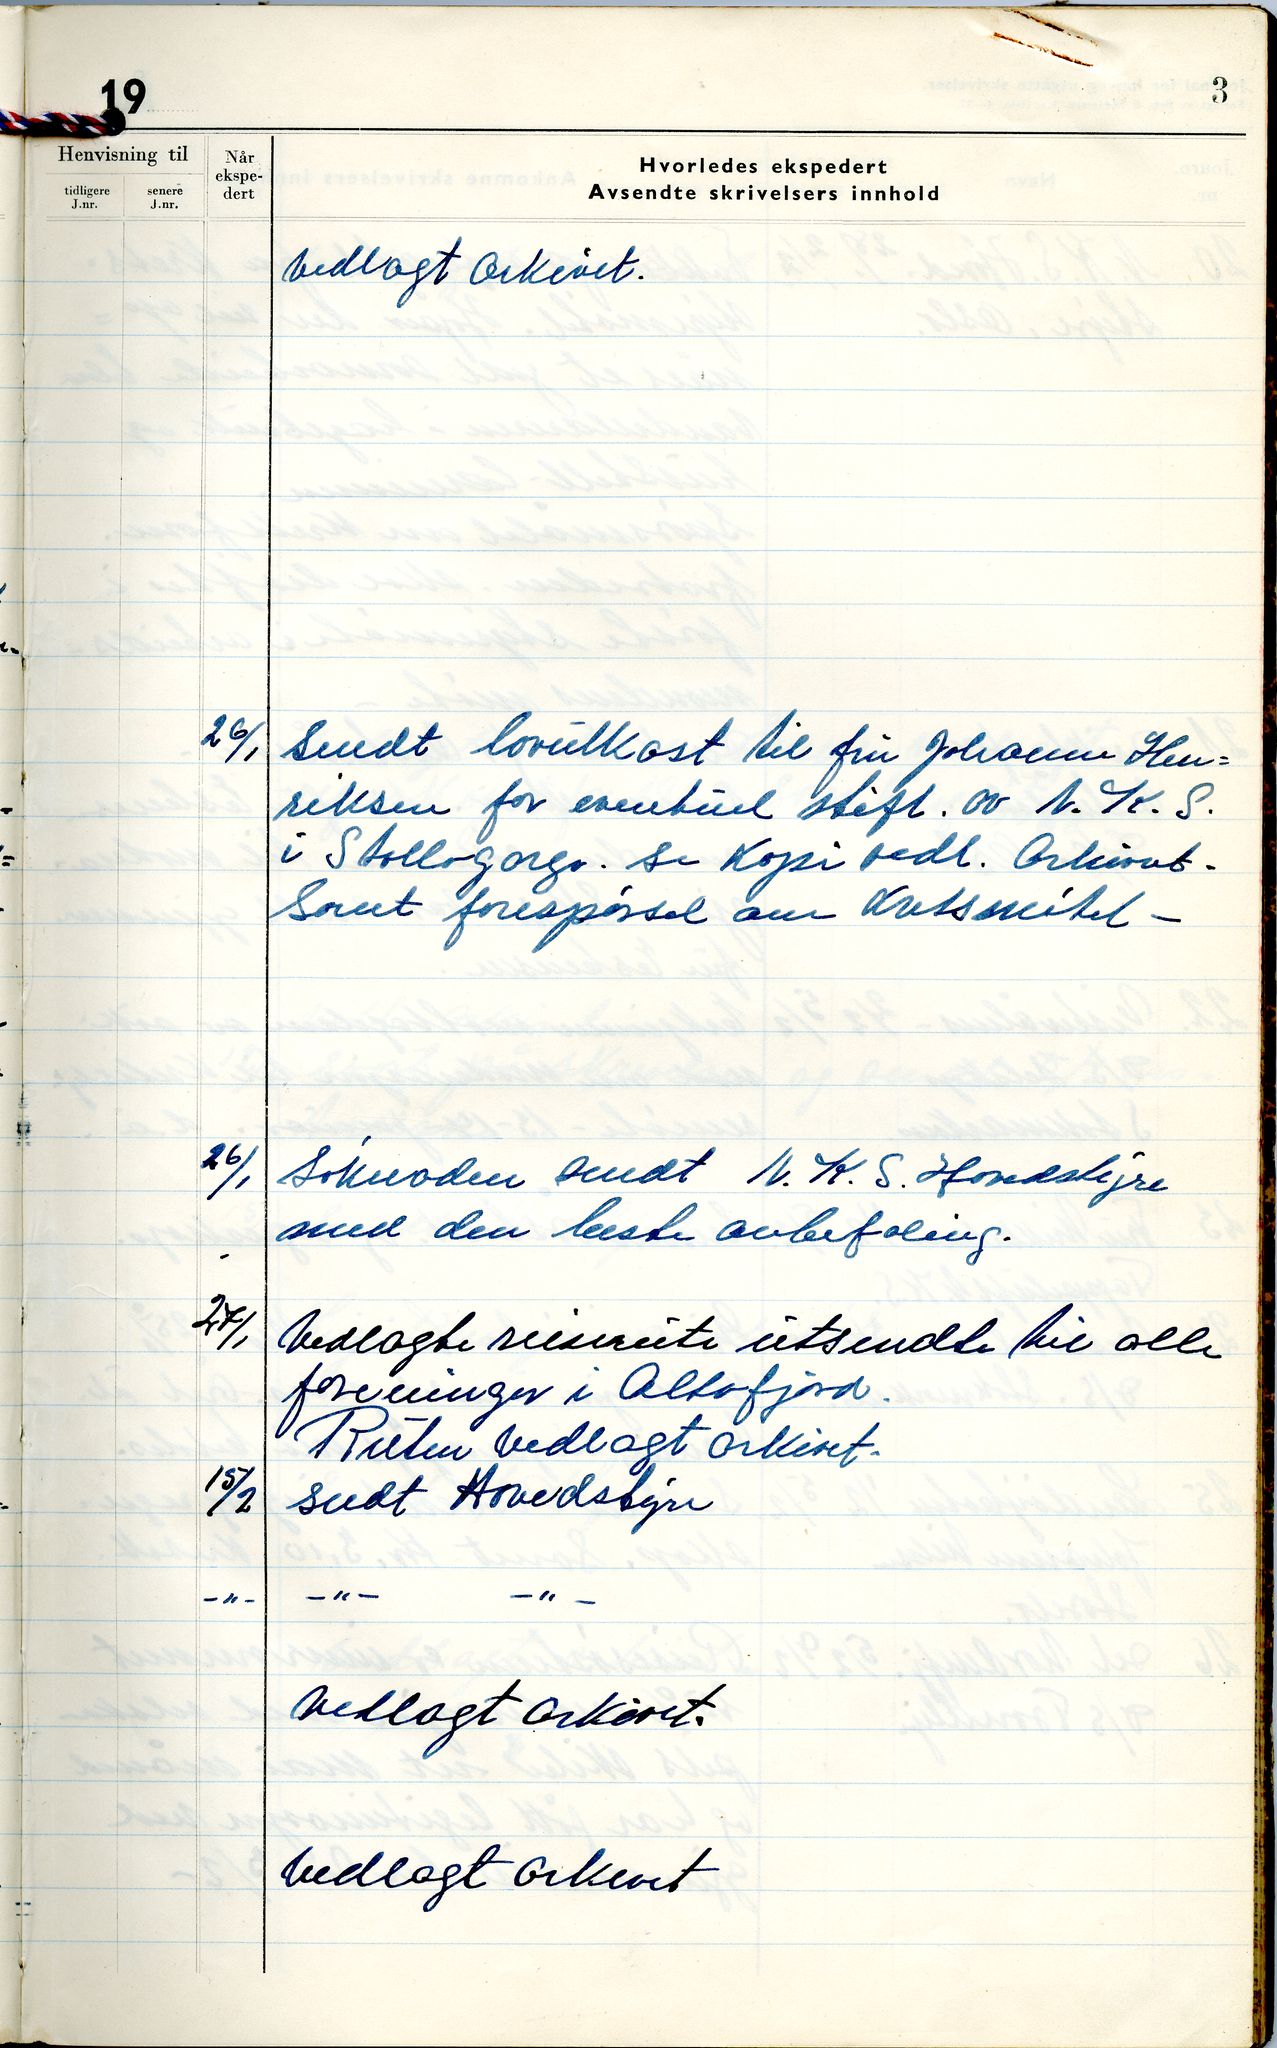 19
3
Henvisning til
Når ekspe-dert
Hvorledes ekspedert
Avsendte skrivelsers innhold
tidligere J.nr.
senere J.nr.
Vedlagt Arkivet.
26/1 Sendt lovutkast til frú Johanne Hen=
riksen for eventuel stift. av N. K. S.
i Stallogargo. se kopi vedl. Arkivet.
Samt forespørsel om
26/1 Søknaden sendt N. K. S. Hovedstyre
med den beste anbefaling.
27/1 Vedlagte reiserúte útsendte til alle
foreninger i Altafjord.
Rúten vedlagt arkivet.
15/2 sendt Hovedstyre
-"- -"- -"-
Vedlagt arkivet.
Vedlagt arkivet